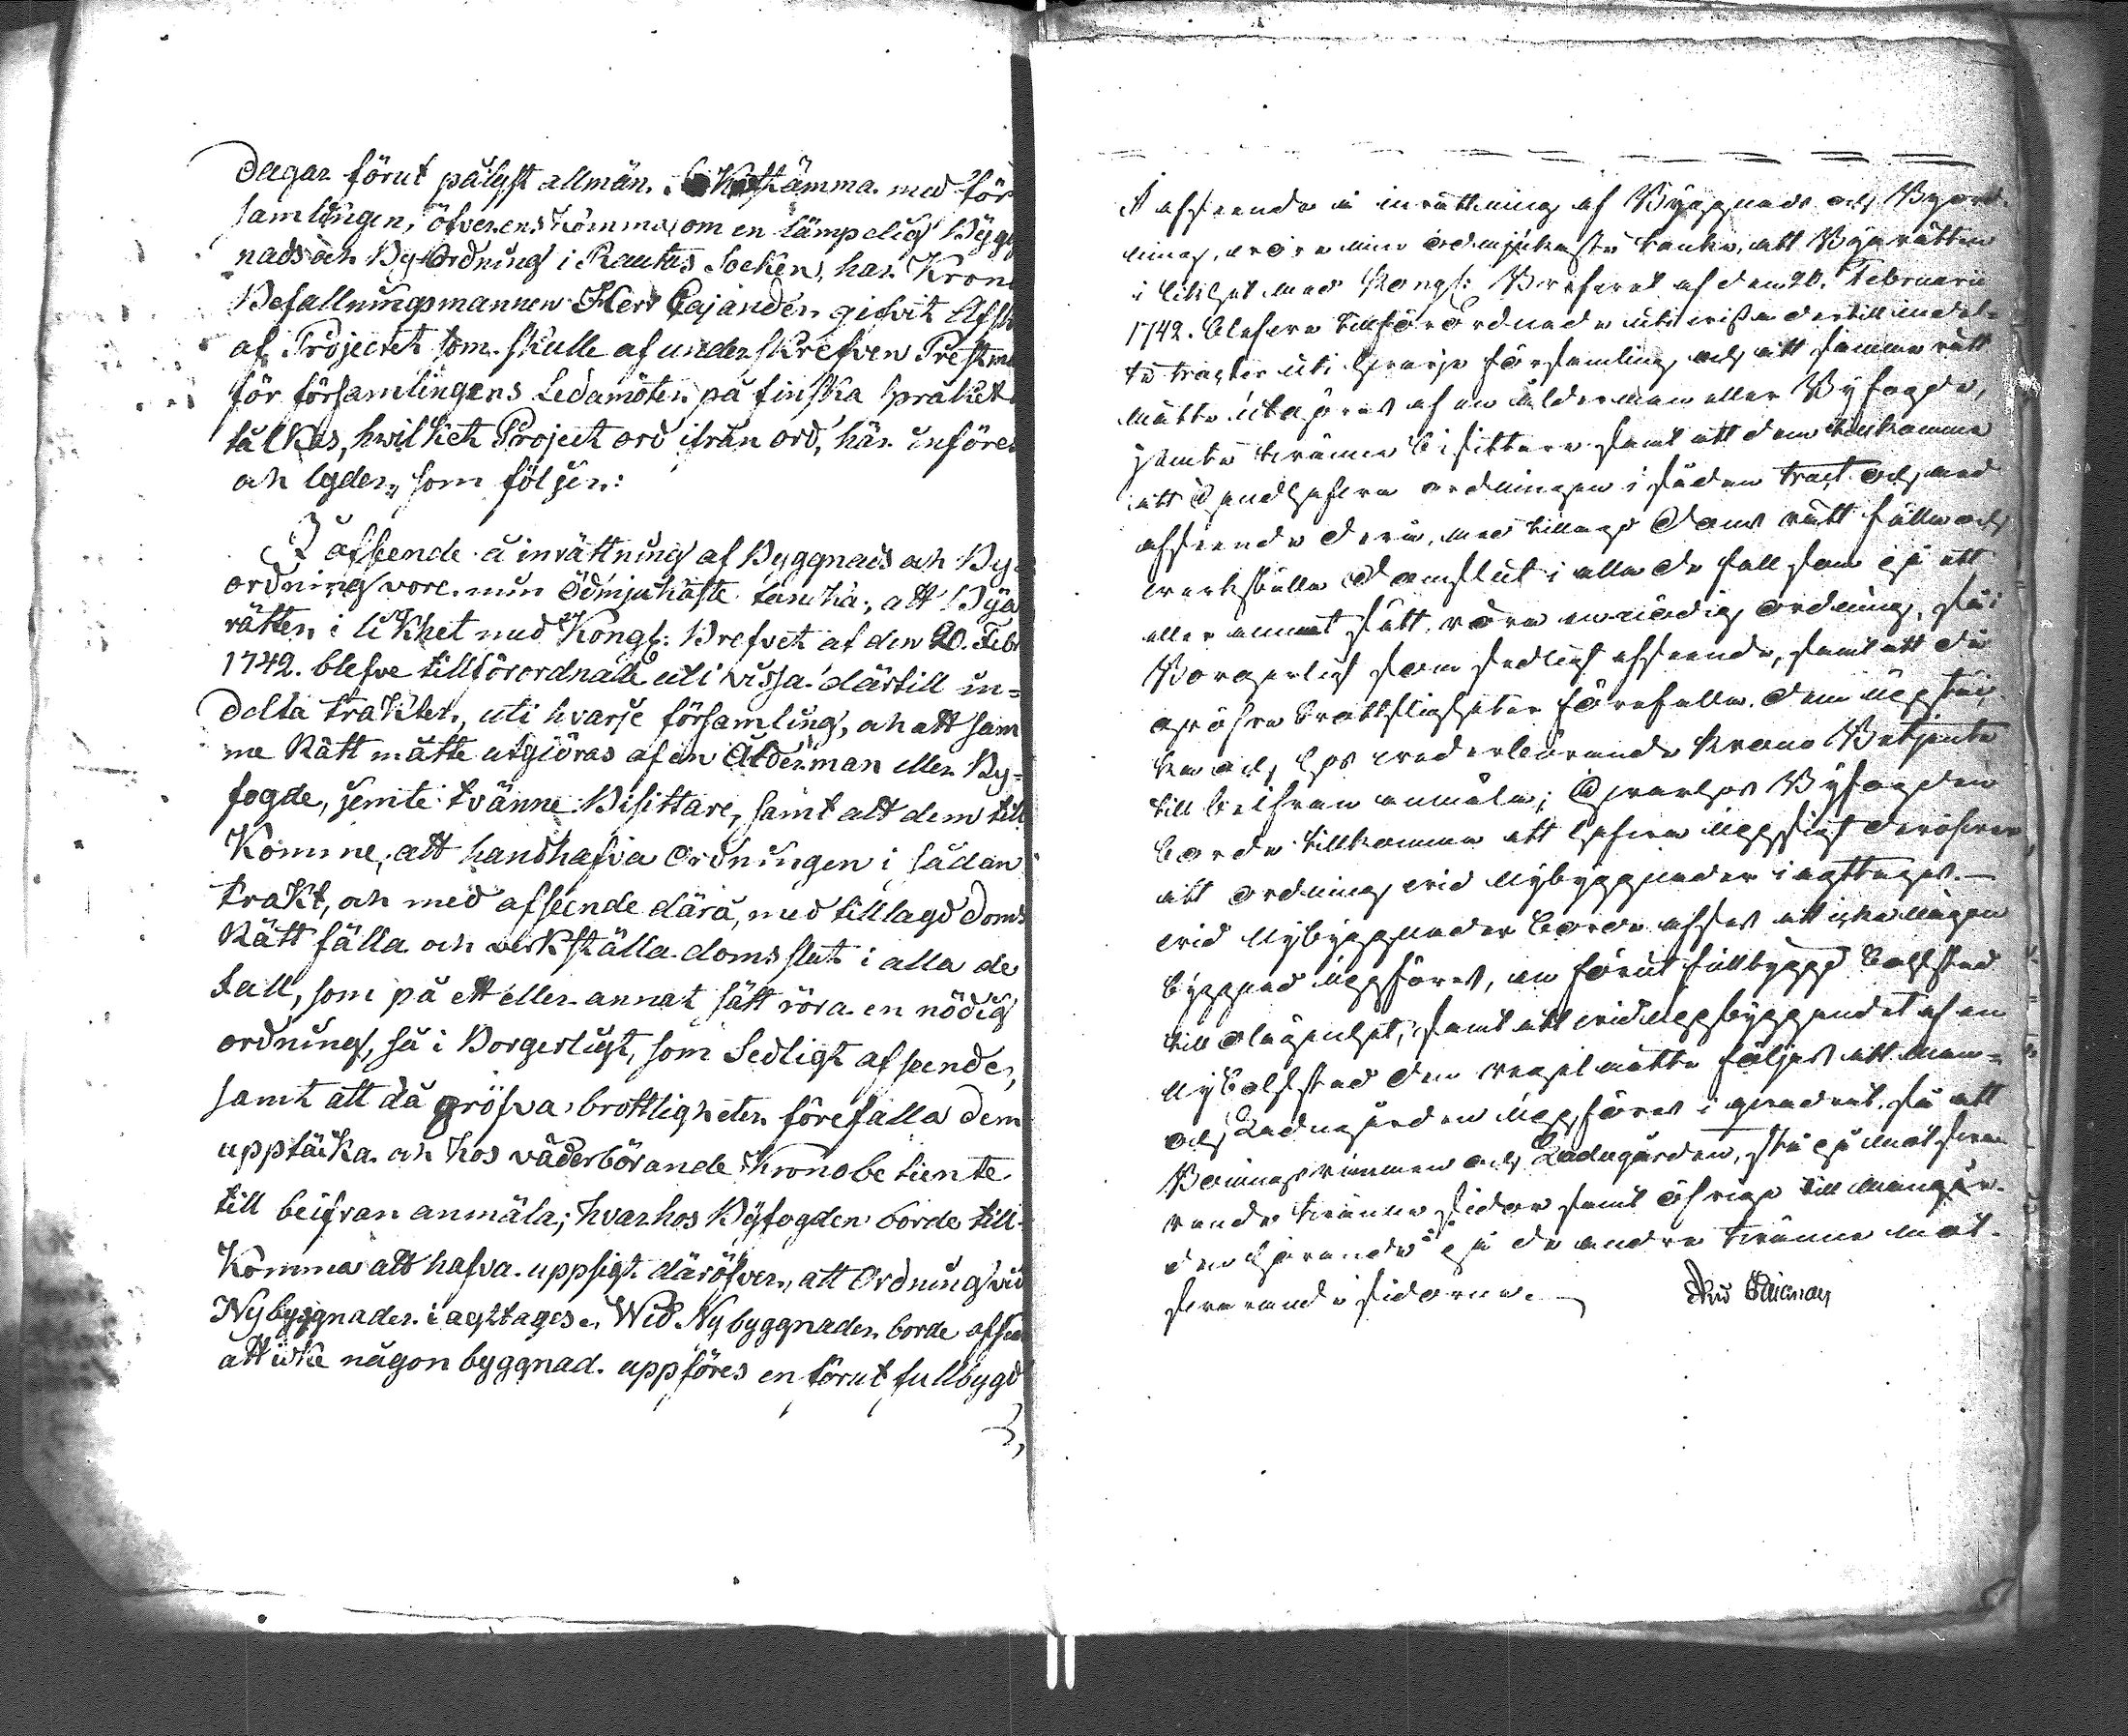 dagar förut pålyst allmän Sockstämma med för
samlingen, öfverenskomma om en lämpelig Bygg
nads och By Ordning i Rautus Socken, har Krono
Befallningsmannen Herr Cajander gifvit Afsk
af Projectet som skulle af underskrefven Prestm
för församlingens Ledamöter på finska språket
tålkas, hwilket Project ord ifrån ord, här införes
och lyder, som följer:
I afseende å inrättning af Byggnads och By
ordning vore min ödmjukaste tanka, att Bya
rätter i likhet med Kongl: Brefvet af den 20. Febr
1742. blefve tillförordnade uti vissa därtill in=
delta trakter, uti hvarje församling, och att sam
me Rätt måtte utgiöras af en Ålderman eller By=
fogde, jemte tvänne Bisittare, samt att dem till
komme, att handhafva Ordningen i sådan
trakt, och med afseende därå, med tillagd Doms
Rätt fälla och verkställa domsslut i alla de
fall, som på ett eller annat sätt röra en nödig
ordning, så i Borgerligt, som Sedligt afseende,
samt att då gröfva brottligheter förefalla dem
upptäcka och hos väderbörande Kronobetiente
till beifran anmäla; hvarhos Byfogden borde till=
komma att hafva uppsigt däröfver, att Ordning vid
Nybyggnader iagttages. Wid Nybyggnader borde afses
att icke någon byggnad uppföres en förut fullbygd
I afseende å inrättning af Byggnads och Byord=
ning, vore min ödmjukaste tanke, att Byarätter
i likhet med Kongl: Brefvet af den 20. Februarii
1742. blefvo tillförordnade uti vissa dertill indel=
te tracter uti hvarje församling och att samma rätt
måtte utgöras af en ålderman eller Byfogde,
jemte tvänne bisittare samt att dem tillkomme
att handhafva ordningen i sådan tract och med
afseende derå, med tillagd Doms rätt fälla och
verkställa Domslut i alla de fall som på ett
eller annat sätt röra en nödig ordning, så i
Borgerligt som sedligt afseende, samt att då
gröfre brottsligheter förefalla dem upptäc=
ka och hos vederbörande Krono Betjente
till beifran anmäla; Hvarhos Byfogden
borde tillkomma att hafva uppsigt deröfver,
att ordning vid Nybyggnader iagttages.
Vid Nybyggnader borde afses att icke någon
byggnad uppföres, en förut fullbyggd bolstad
till olägenhet, samt att vid uppbyggandet af en
Ny bolstad den regel måtte följas att Man=
och Ladugården uppföres i qvadrat så att
Boningsrummen och Ladugården, stå på mot sva=
rande tvänne sidor samt öfrige till Mangår=
den hörande på de andra tvänne mot=
svarande sidorna.